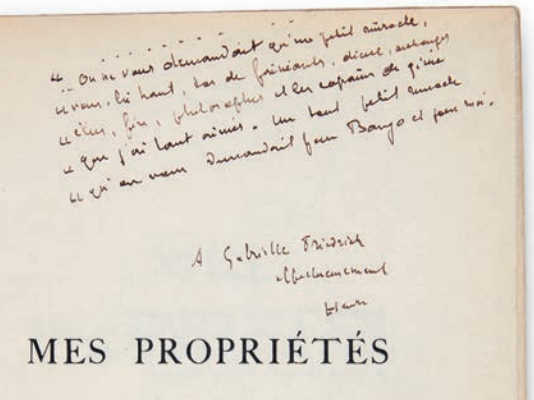 “ On ne vous demandait qu'un petit miracle,
“ vous, là haut, tas de fainéants, dieux, archanges
“ élus, fées, philosophes et les copains de génie
“ que j'ai tant aimés. Un seul petit miracle
“ qu'on vous demandait pour Banjo et pour moi.
A Gabrielle Friedrich
affectueusement
Henri
MES PROPRIÉTÉS